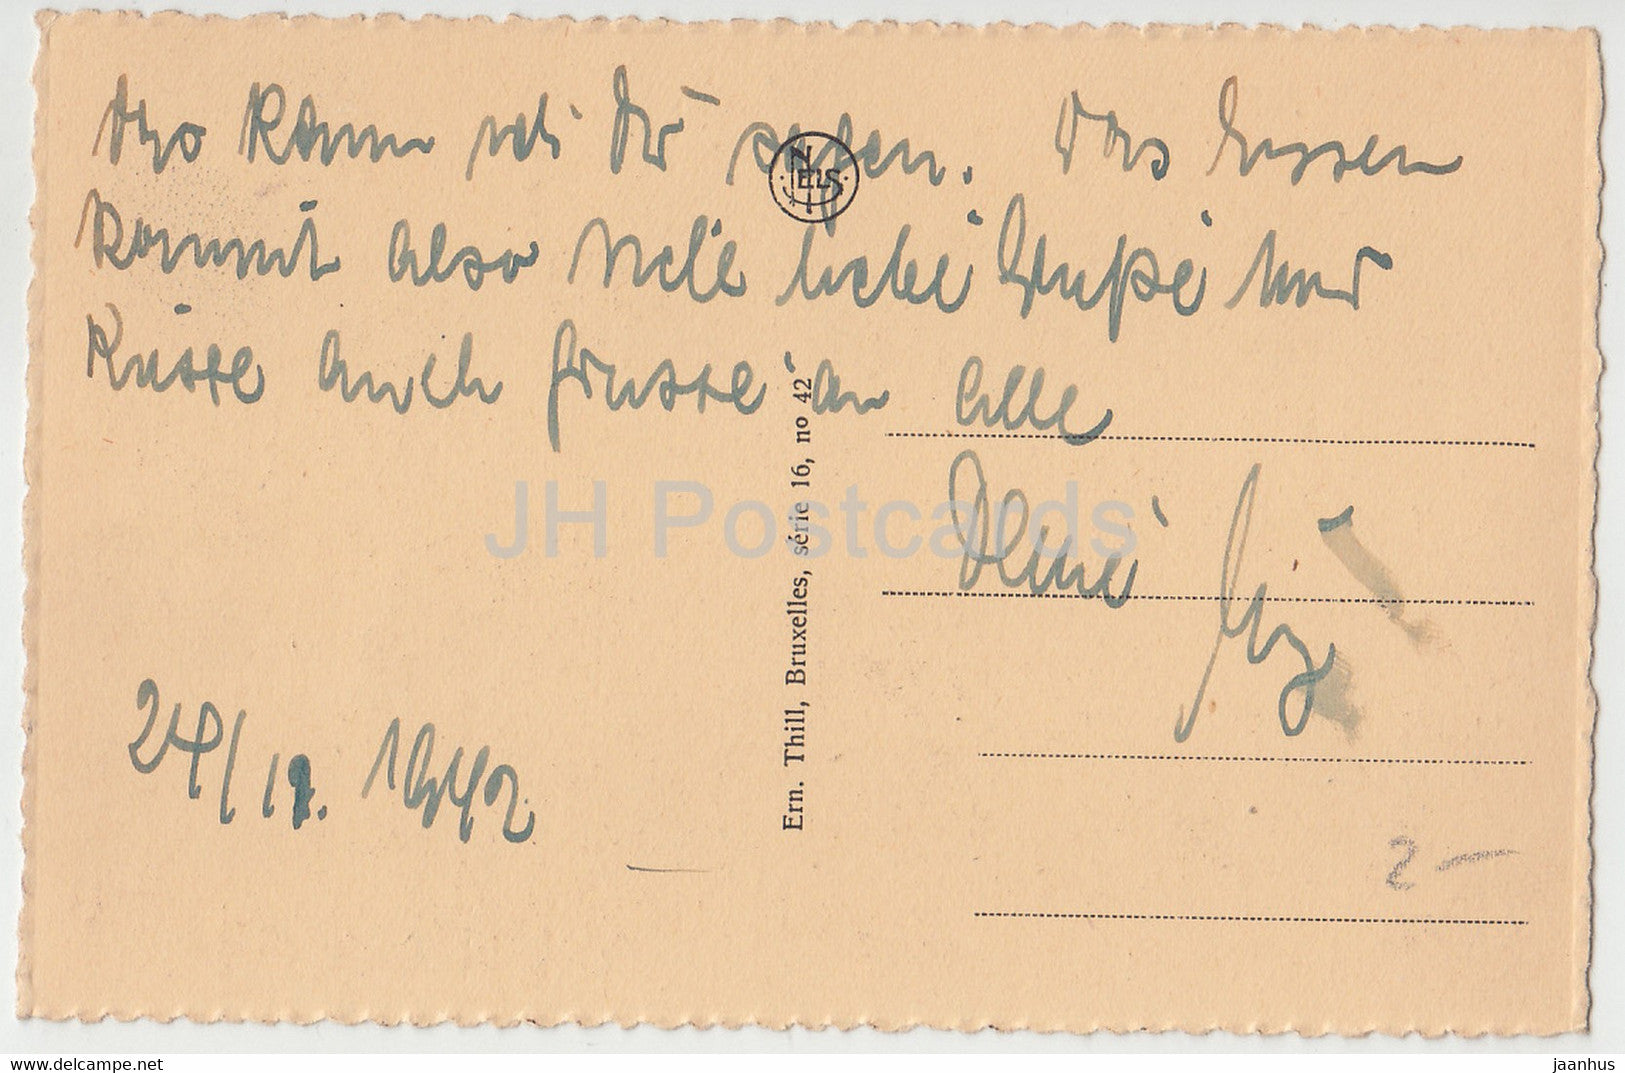 kann ich Dir sagen. Das Essen
kommt also viele liebe Grüße und
Küsse auch Grüsse an alle
Deine
24/12. 1942
NELS
Ern. Thill, Bruxelles, série 16, no 42
2 –
JH Postcards
www.hippostcard.com
jaanhus